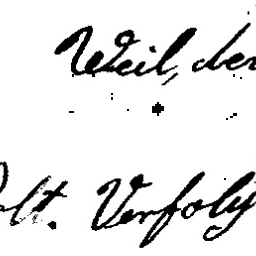 Weil, der
olt. Verfolg